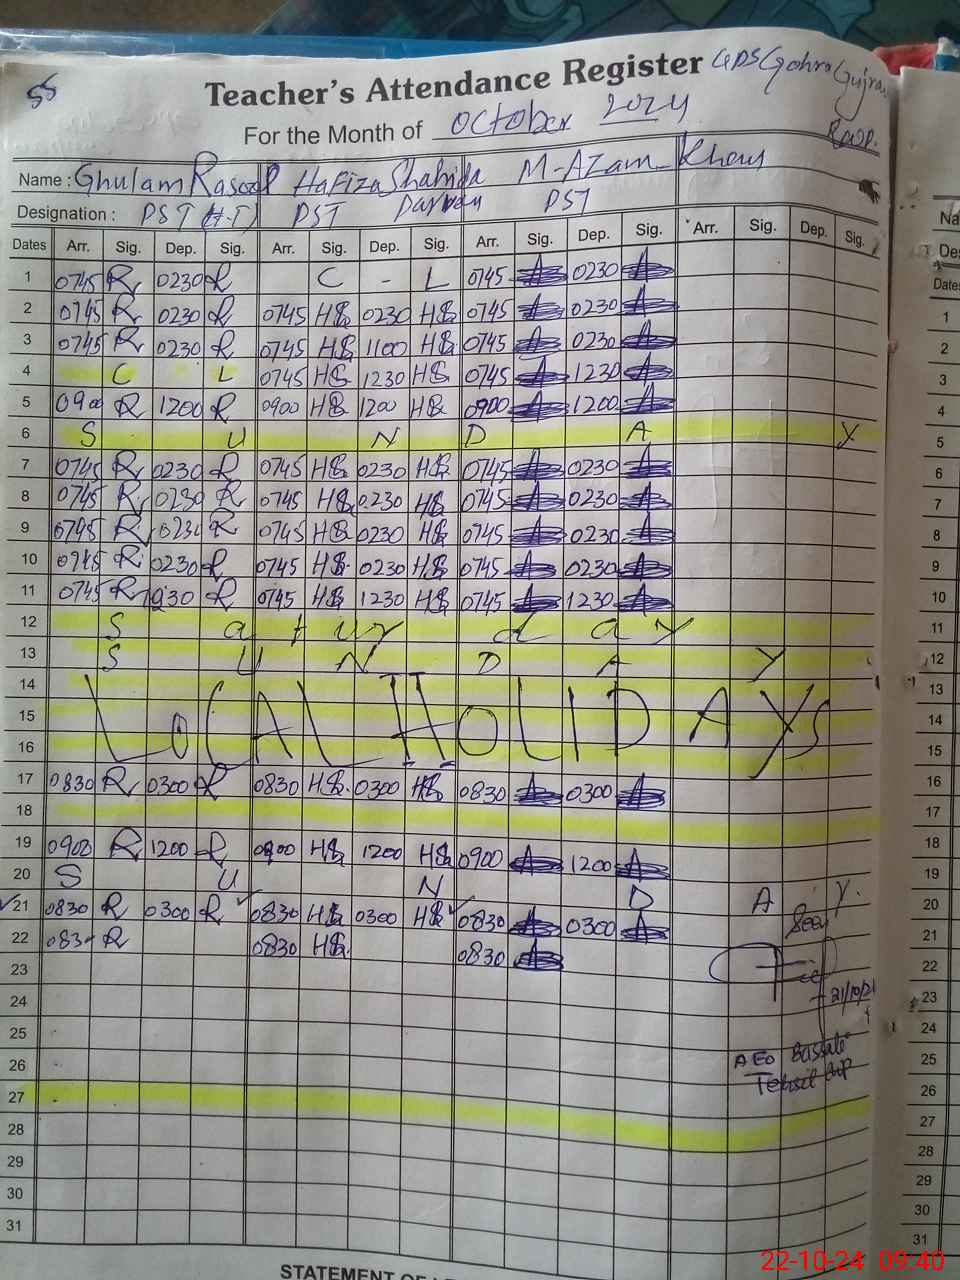 55
Teacher's Attendance Register GPS Gohra Gujran
For the Month of October 2024 Rwp.
Name : Ghulam Rasool Hafiza Shahida M-Azam Khan
Designation : PST (H-T) PST Parveen PST
Dates Arr. Sig. Dep. Sig. Arr. Sig. Dep. Sig. Arr. Sig. Dep. Sig. Arr. Sig. Dep. Sig.
1 0745 R 0230 R C - L 0745 A 0230 A
2 0745 R 0230 R 0745 HS 0230 HS 0745 A 0230 A
3 0745 R 0230 R 0745 HS 1100 HS 0745 A 0230 A
4 C L 0745 HS 1230 HS 0745 A 1230 A
5 0900 R 1200 R 0900 HS 1200 HS 0900 A 1200 A
6 S U N D A Y
7 0745 R 0230 R 0745 HS 0230 HS 0745 A 0230 A
8 0745 R 0230 R 0745 HS 0230 HS 0745 A 0230 A
9 0745 R 0230 R 0745 HS 0230 HS 0745 A 0230 A
10 0745 R 0230 R 0745 HS 0230 HS 0745 A 0230 A
11 0745 R 1230 R 0745 HS 1230 HS 0745 A 1230 A
12 S a t u r d a y
13 S U N D A Y
14
15 LOCAL HOLIDAYS
16
17 0830 R 0300 R 0830 HS 0300 HS 0830 A 0300 A
18
19 0900 R 1200 R 0900 HS 1200 HS 0900 A 1200 A
20 S U N D A Y.
21 0830 R 0300 R 0830 HS 0300 HS 0830 A 0300 A Seen
22 0830 R 0830 HS 0830 A
23 21/10/24
24
25 AEO Bassali
26 Tehsil Rwp
27
28
29
30
31
STATEMENT OF
Na
De
Dates
1
2
3
4
5
6
7
8
9
10
11
12
13
14
15
16
17
18
19
20
21
22
23
24
25
26
27
28
29
30
31
22-10-24 09:40